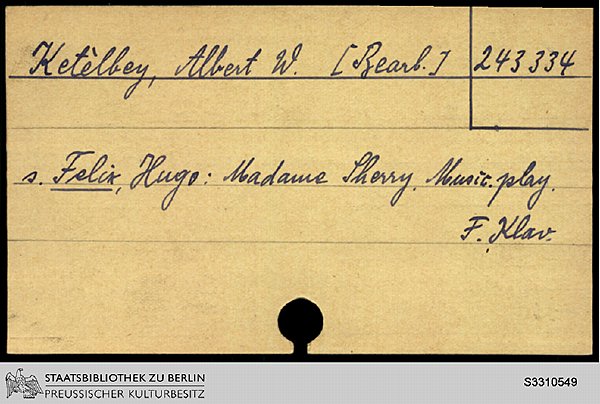 Ketèlbey, Albert W. [Bearb.] 243334
s. Felix, Hugo: Madame Sherry. Music. play.
F. Klav.
STAATSBIBLIOTHEK ZU BERLIN
PREUSSISCHER KULTURBESITZ
S3310549